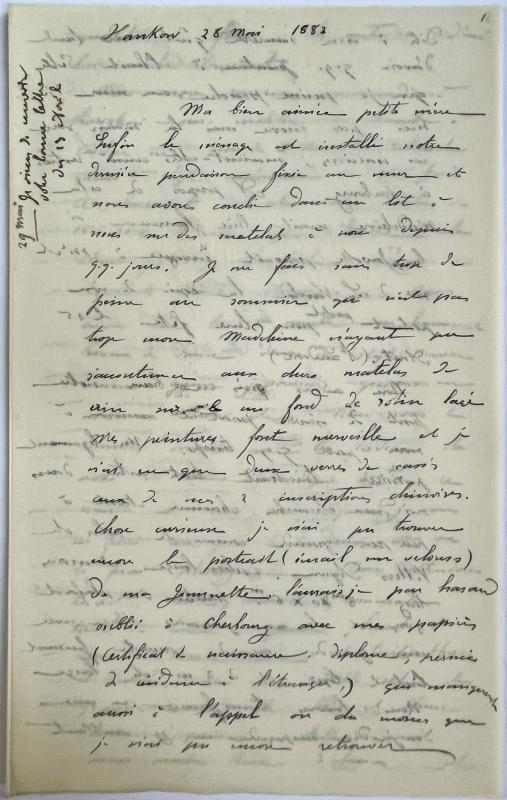 1
Hankow 28 Mai 1882
29 Mai Je viens de recevoir
votre bonne lettre
du 13 Avril
Ma bien aimée petite mère
Enfin le ménage est installé notre
dernière pendaison fixée au mur et
nous avons couché dans un lit à
nous sur des matelas à nous depuis
q.q. jours. Je me fais sans trop de
peine au sommier qui n'est pas
trop mou Madeleine n'ayant pu
s'accoutumer aux durs matelas de
crin sur un fond de rotin
Mes peintures font merveille et je
n'ai eu que deux verres de cassés
ceux de mes 2 inscriptions chinoises.
Chose curieuse je n'ai pu trouver
encore le portrait (émail sur velours)
de ma Jeannette, l'aurais je par hasard
oublié à Cherbourg avec mes papiers
(certificat de naissance, diplome, permis
de résidence à l'étranger,) qui manquent
aussi à l'appel ou du moins que
je n'ai pu encore retrouver